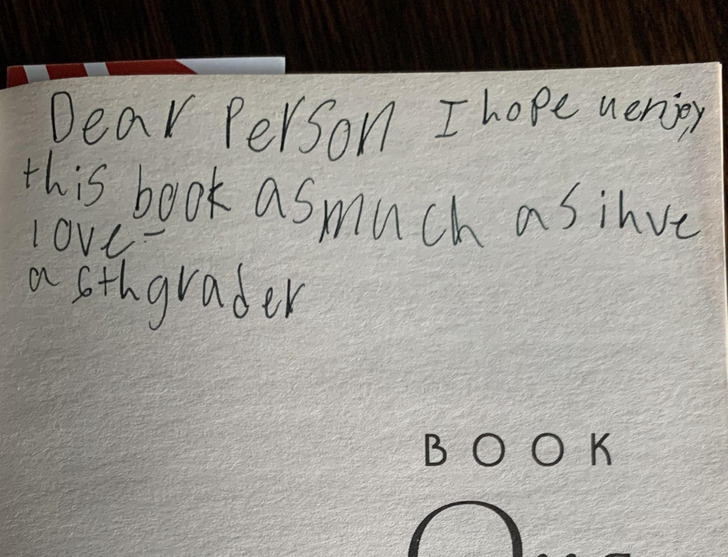 Dear Person I hope u enjoy
this book as much as ihve
love-
a 6th grader
BOOK
One